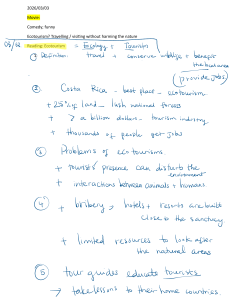 2020/03/03
Movie:
Comedy, funny
Ecotourism? Travelling / visiting without harming the nature
03/12 Reading: Ecotourism = Ecology + Tourists
① Definition: travel + conserve wildlife + benefit the local area
(provide jobs)
② Costa Rica - best place - ecotourism
+ 25% of land - lush national forests
+ a billion dollars - tourism industry
+ thousands of people get jobs
③ Problems of ecotourism.
+ tourists' presence can disturb the environment
+ interactions between animals + humans
④ + bribery → hotels + resorts are built close to the sanctuary
+ limited resources to look after the natural areas
⑤ tour guides educate tourists
→ take lessons to their home countries